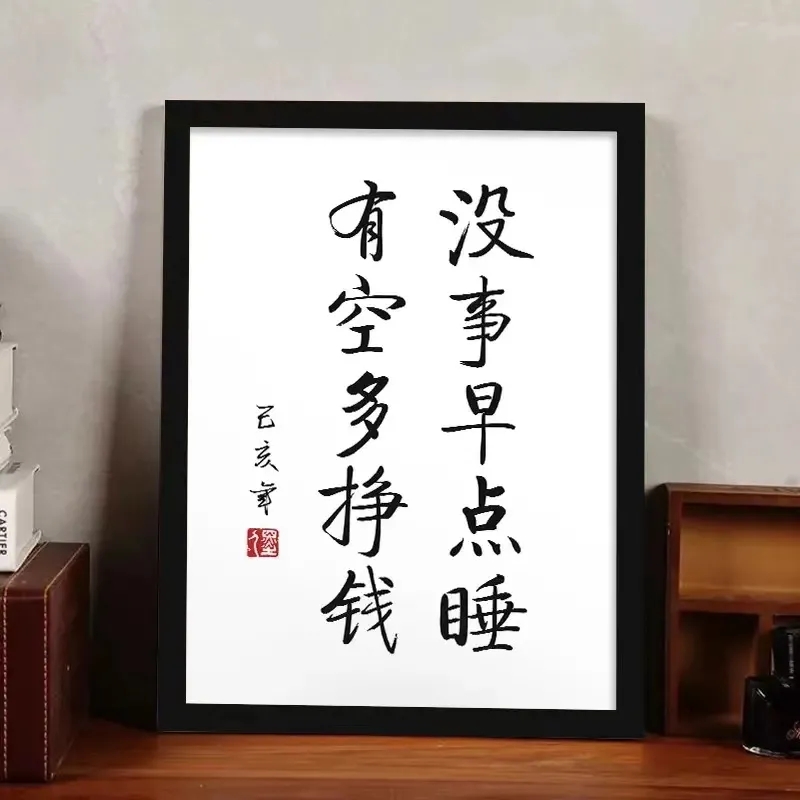 没事早点睡
有空多挣钱
己亥年
墨人
CARTIER